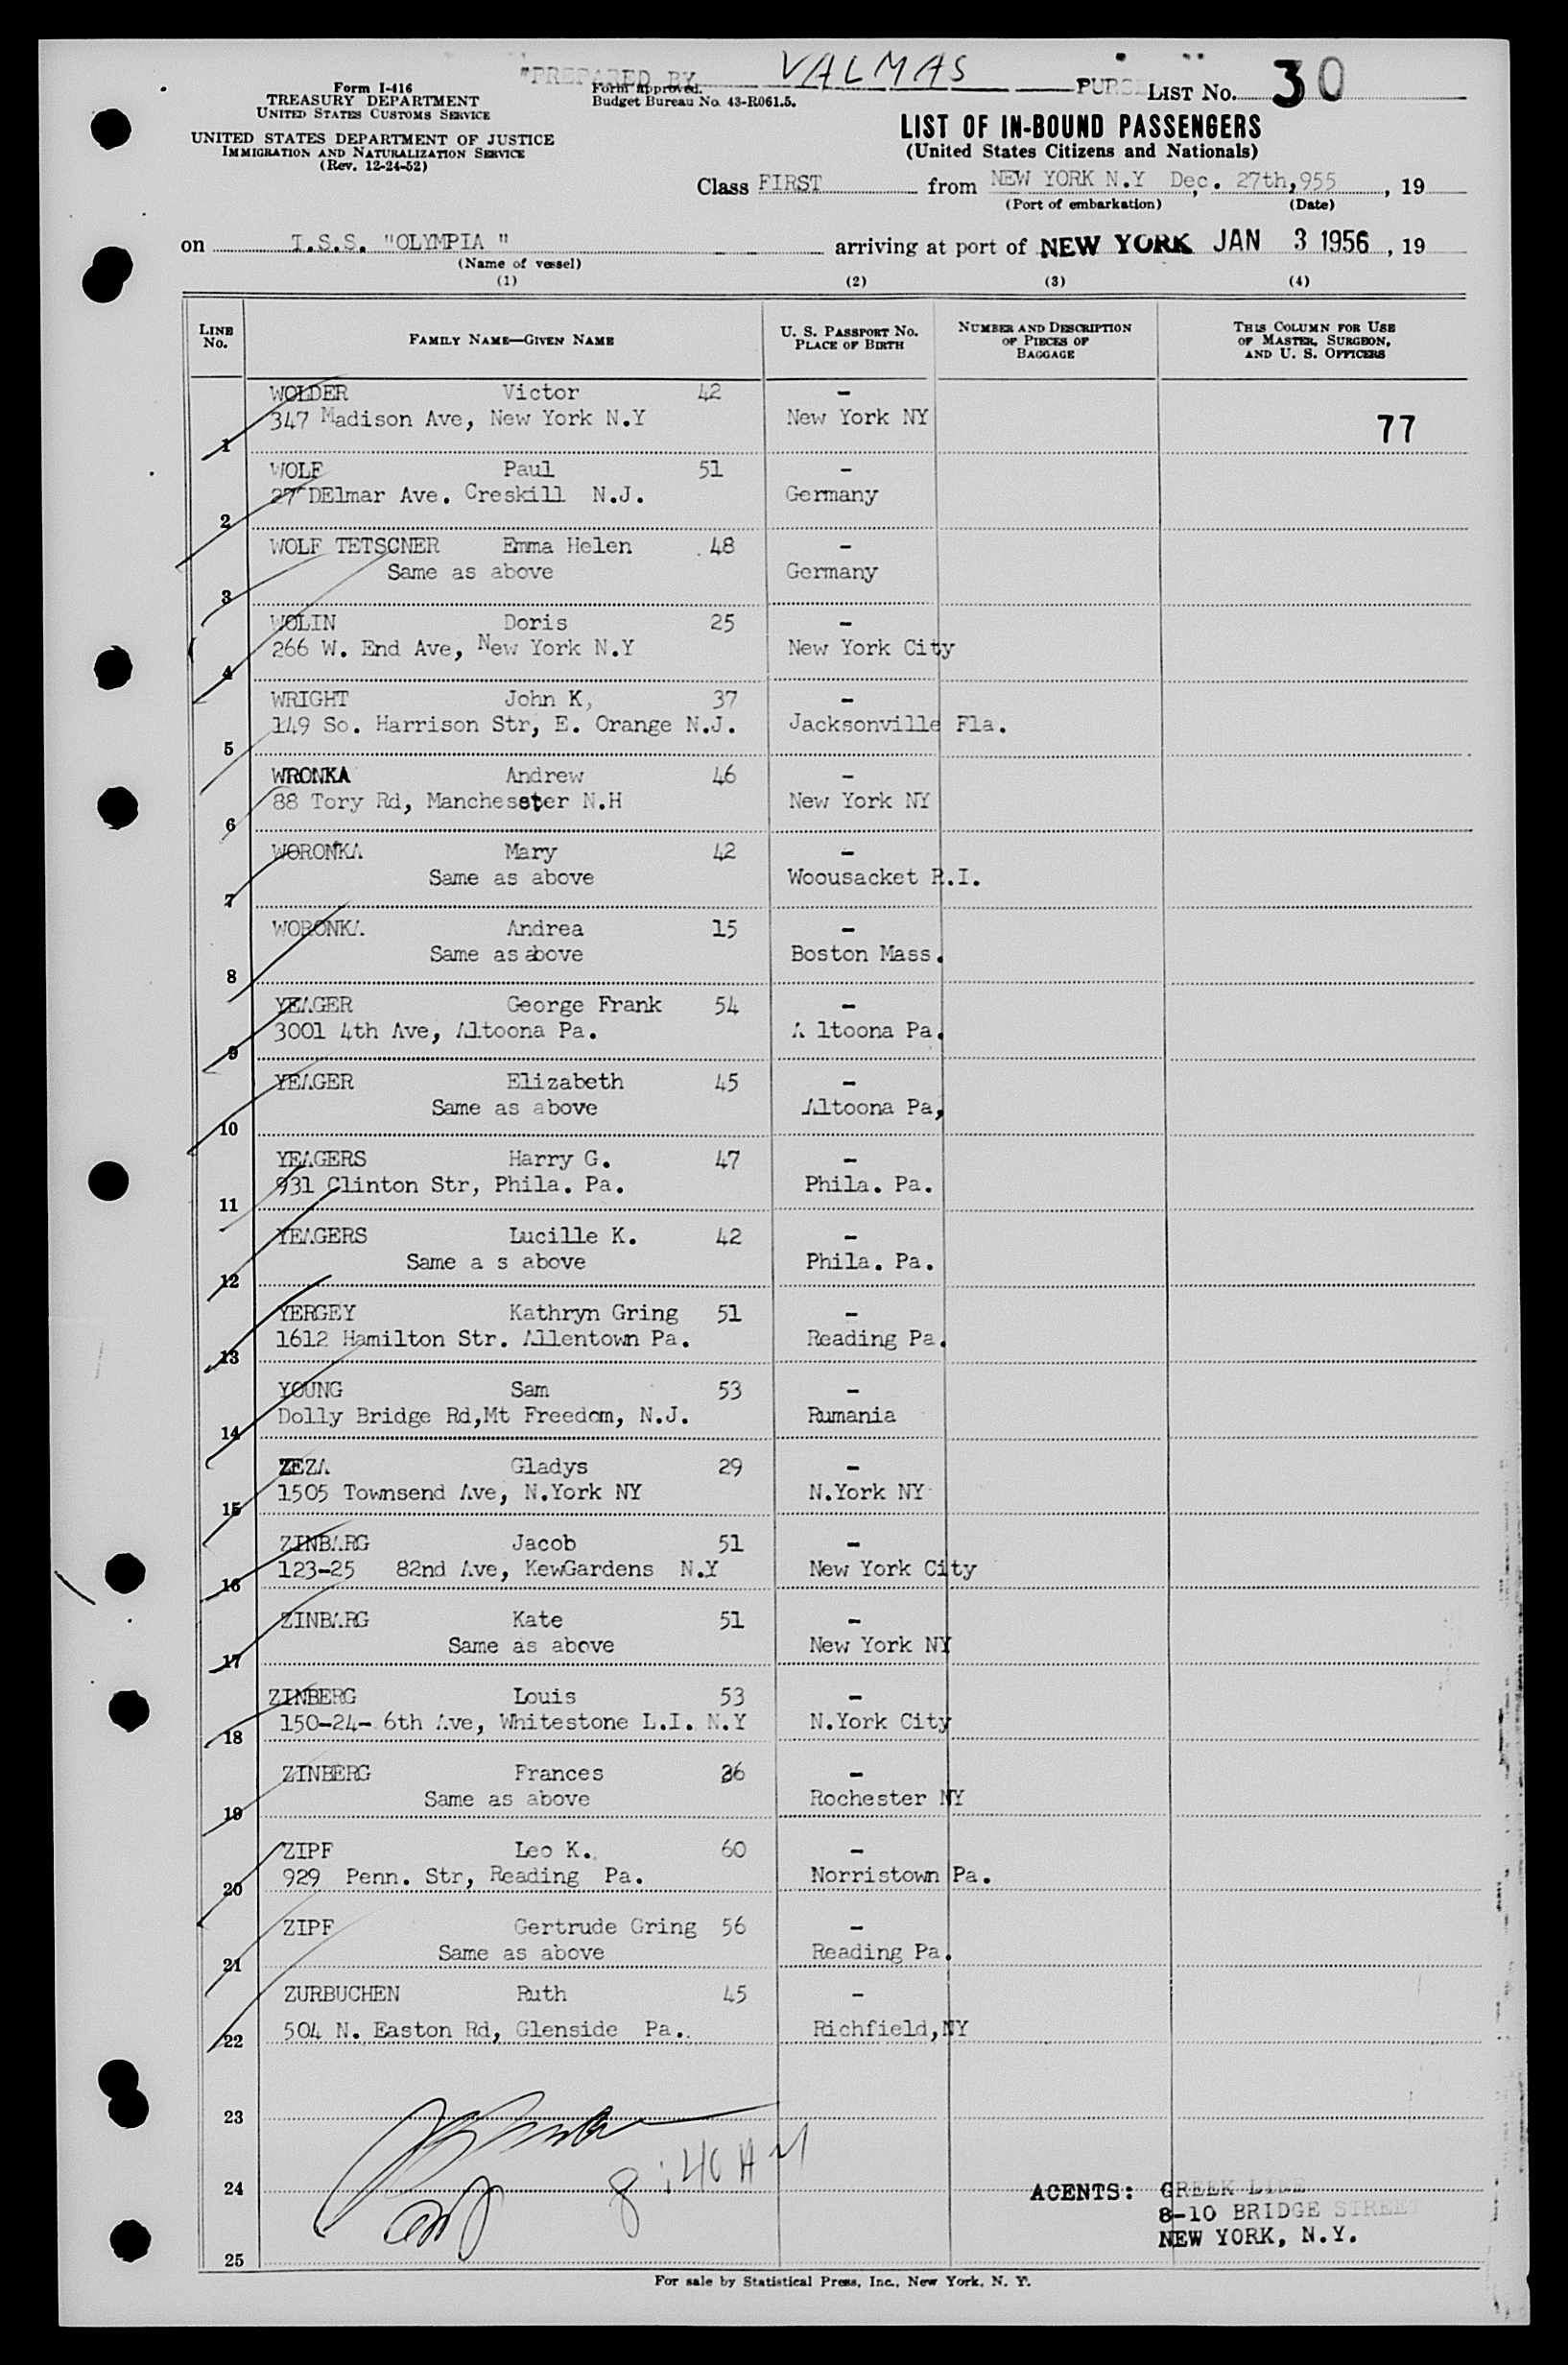 "PREPARED BY VALMAS PURSER
Form I-416
TREASURY DEPARTMENT
UNITED STATES CUSTOMS SERVICE
UNITED STATES DEPARTMENT OF JUSTICE
IMMIGRATION AND NATURALIZATION SERVICE
(Rev. 12-24-52)
Form approved.
Budget Bureau No. 43-R061.5.
LIST No. 30
LIST OF IN-BOUND PASSENGERS
(United States Citizens and Nationals)
Class FIRST from NEW YORK N.Y Dec. 27th,955, 19
(Port of embarkation) (Date)
on T.S.S. "OLYMPIA " arriving at port of NEW YORK JAN 3 1956, 19
(Name of vessel)
(1) (2) (3) (4)
LINE No. FAMILY NAME—GIVEN NAME U. S. PASSPORT NO. PLACE OF BIRTH NUMBER AND DESCRIPTION OF PIECES OF BAGGAGE THIS COLUMN FOR USE OF MASTER, SURGEON, AND U. S. OFFICERS
WOLDER Victor 42 -
347 Madison Ave, New York N.Y New York NY 77
1
WOLF Paul 51 -
27 DElmar Ave. Creskill N.J. Germany
2
WOLF TETSCNER Emma Helen 48 -
Same as above Germany
3
WOLIN Doris 25 -
266 W. End Ave, New York N.Y New York City
4
WRIGHT John K, 37 -
149 So. Harrison Str, E. Orange N.J. Jacksonville Fla.
5
WRONKA Andrew 46 -
88 Tory Rd, Manchesster N.H New York NY
6
WORONKA Mary 42 -
Same as above Woousacket R.I.
7
WORONKA Andrea 15 -
Same as above Boston Mass.
8
YEAGER George Frank 54 -
3001 4th Ave, Altoona Pa. A ltoona Pa.
9
YEAGER Elizabeth 45 -
Same as above Altoona Pa,
10
YEAGERS Harry G. 47 -
931 Clinton Str, Phila. Pa. Phila. Pa.
11
YEAGERS Lucille K. 42 -
Same a s above Phila. Pa.
12
YERGEY Kathryn Gring 51 -
1612 Hamilton Str. Allentown Pa. Reading Pa.
13
YOUNG Sam 53 -
Dolly Bridge Rd,Mt Freedom, N.J. Rumania
14
ZEZA Gladys 29 -
1505 Townsend Ave, N.York NY N.York NY
15
ZINBARG Jacob 51 -
123-25 82nd Ave, KewGardens N.Y New York City
16
ZINBARG Kate 51 -
Same as above New York NY
17
ZINBERG Louis 53 -
150-24- 6th Ave, Whitestone L.I. N.Y N.York City
18
ZINBERG Frances 36 -
Same as above Rochester NY
19
ZIPF Leo K. 60 -
929 Penn. Str, Reading Pa. Norristown Pa.
20
ZIPF Gertrude Gring 56 -
Same as above Reading Pa.
21
ZURBUCHEN Ruth 45 -
504 N. Easton Rd, Glenside Pa. Richfield,NY
22
23
8:40 AM
24
AGENTS: GREEK LINE
8-10 BRIDGE STREET
NEW YORK, N.Y.
25
For sale by Statistical Press, Inc., New York, N. Y.